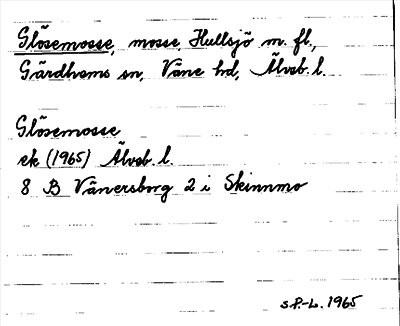 Glösemosse, mosse, Hullsjö m. fl.,
Gärdhems sn, Väne hd, Älvsb. l.
Glösemosse
ek (1965) Älvsb. l.
8 B Vänersborg 2 i Skinnmo
S.P.-L. 1965